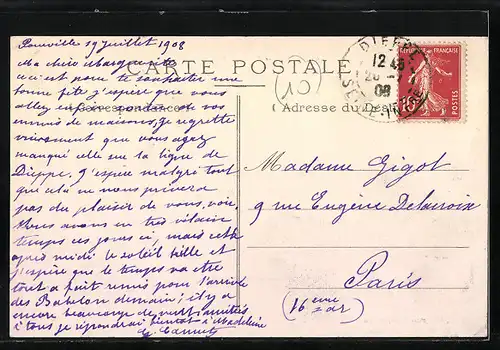 Pourville 19 Juillet 1908
Ma chère Marguerite
ceci est pour te souhaiter une
bonne fête j'espère que vous
allez vos
ennuis de maisons, je regrette
vivement que vous ayez
manqué elle sur la ligne de
Dieppe. J'espère malgré tout
que cela ne nous privera
pas du plaisir de vous voir.
Nous avons eu très vilain
temps ces jours ci, mais cette
après midi le soleil brille et
j'espère que le temps va être
tout à fait remis pour l'arrivée
des demain; il y a
encore beaucoup de
à tous je répondrai bientôt à Madeleine
CARTE POSTALE
Correspondance
(10)
(Adresse du
DIEPPE
12 45
20 -7
08
SEINE-INF
REPUBLIQUE FRANÇAISE
10
POSTES
Madame Gigot
9 rue Eugène Delacroix
Paris
(16